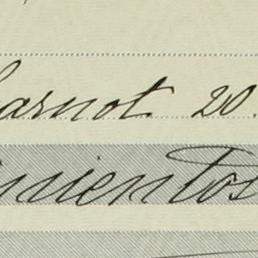 arnot. 20.
nientos